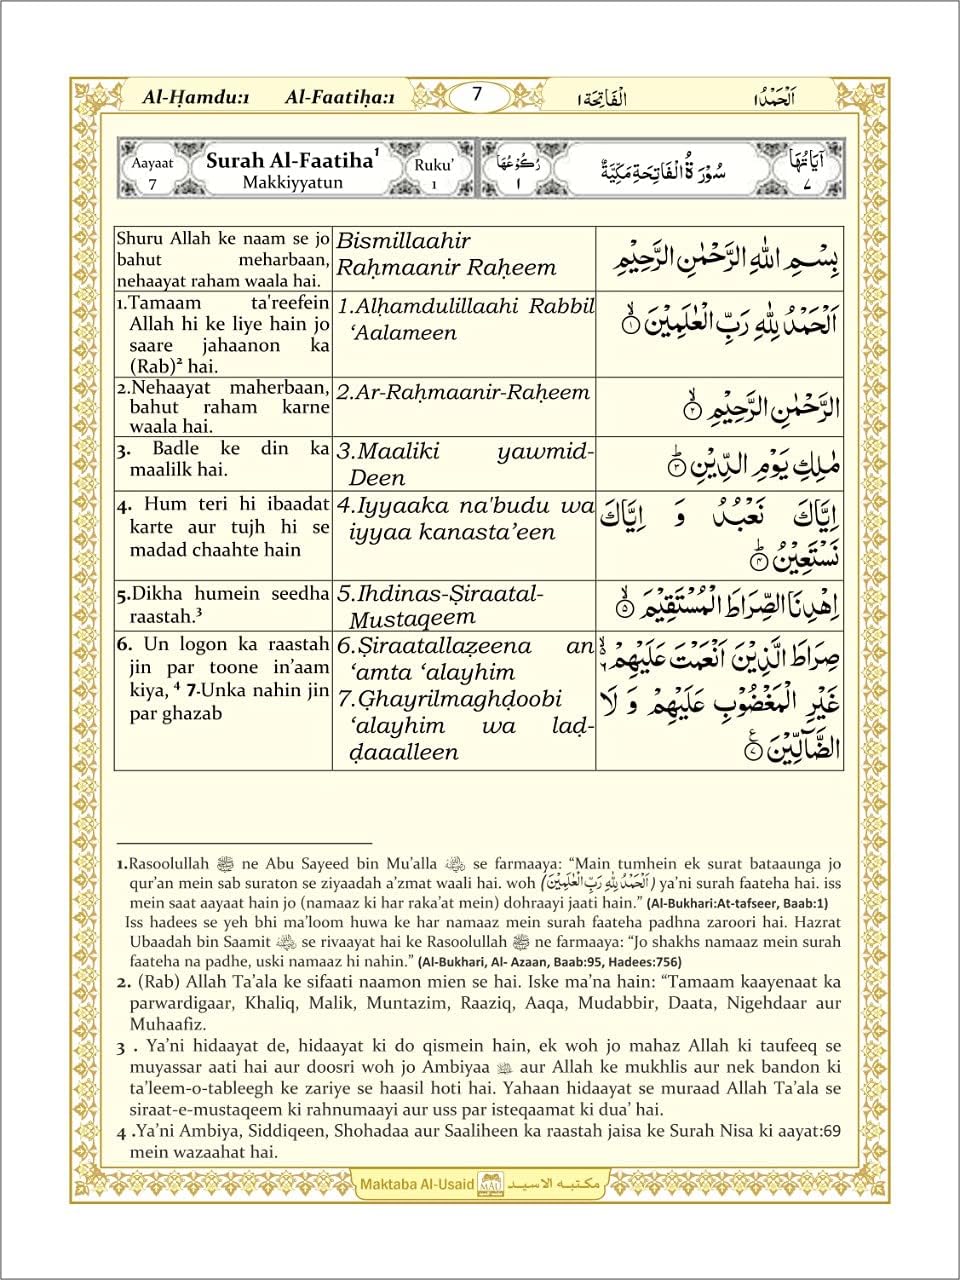 Al-Ḥamdu:1 Al-Faatiḥa:1 7 اَلْفَاتِحَة١ اَلْحَمْدُ١
Aayaat Surah Al-Faatiha¹ Ruku’ رُكُوْعُهَا سُوْرَةُ الْفَاتِحَةِ مَكِّيَّةٌ آيَاتُهَا
7 Makkiyyatun 1 ١ ٧
Shuru Allah ke naam se jo
bahut meharbaan,
nehaayat raham waala hai.
Bismillaahir
Raḥmaanir Raḥeem
بِسْمِ اللّٰهِ الرَّحْمٰنِ الرَّحِيْمِ
1.Tamaam ta'reefein
Allah hi ke liye hain jo
saare jahaanon ka
(Rab)² hai.
1.Alḥamdulillaahi Rabbil
‘Aalameen
اَلْحَمْدُ لِلّٰهِ رَبِّ الْعٰلَمِيْنَ ۙ﴿١﴾
2.Nehaayat maherbaan,
bahut raham karne
waala hai.
2.Ar-Raḥmaanir-Raḥeem
الرَّحْمٰنِ الرَّحِيْمِ ۙ﴿٢﴾
3. Badle ke din ka
maalilk hai.
3.Maaliki yawmid-
Deen
مٰلِكِ يَوْمِ الدِّيْنِ ؕ﴿٣﴾
4. Hum teri hi ibaadat
karte aur tujh hi se
madad chaahte hain
4.Iyyaaka na'budu wa
iyyaa kanasta’een
اِيَّاكَ نَعْبُدُ وَ اِيَّاكَ
نَسْتَعِيْنُ ؕ﴿٤﴾
5.Dikha humein seedha
raastah.³
5.Ihdinas-Ṣiraatal-
Mustaqeem
اِهْدِنَا الصِّرَاطَ الْمُسْتَقِيْمَ ۙ﴿٥﴾
6. Un logon ka raastah
jin par toone in’aam
kiya, ⁴ 7-Unka nahin jin
par ghazab
6.Ṣiraatallaẓeena an
‘amta ‘alayhim
7.Ghayrilmaghḍoobi
‘alayhim wa laḍ-
ḍaaalleen
صِرَاطَ الَّذِيْنَ اَنْعَمْتَ عَلَيْهِمْ ۙ﴿٦﴾
غَيْرِ الْمَغْضُوْبِ عَلَيْهِمْ وَ لَا
الضَّآلِّيْنَ ﴿٧﴾ع
1.Rasoolullah ﷺ ne Abu Sayeed bin Mu’alla se farmaaya: “Main tumhein ek surat bataaunga jo
qur’an mein sab suraton se ziyaadah a’zmat waali hai. woh (اَلْحَمْدُ لِلّٰهِ رَبِّ الْعٰلَمِيْنَ) ya’ni surah faateha hai. iss
mein saat aayaat hain jo (namaaz ki har raka’at mein) dohraayi jaati hain.” (Al-Bukhari:At-tafseer, Baab:1)
Iss hadees se yeh bhi ma’loom huwa ke har namaaz mein surah faateha padhna zaroori hai. Hazrat
Ubaadah bin Saamit se rivaayat hai ke Rasoolullah ﷺ ne farmaaya: “Jo shakhs namaaz mein surah
faateha na padhe, uski namaaz hi nahin.” (Al-Bukhari, Al- Azaan, Baab:95, Hadees:756)
2. (Rab) Allah Ta’ala ke sifaati naamon mien se hai. Iske ma’na hain: “Tamaam kaayenaat ka
parwardigaar, Khaliq, Malik, Muntazim, Raaziq, Aaqa, Mudabbir, Daata, Nigehdaar aur
Muhaafiz.
3 . Ya’ni hidaayat de, hidaayat ki do qismein hain, ek woh jo mahaz Allah ki taufeeq se
muyassar aati hai aur doosri woh jo Ambiyaa aur Allah ke mukhlis aur nek bandon ki
ta’leem-o-tableegh ke zariye se haasil hoti hai. Yahaan hidaayat se muraad Allah Ta’ala se
siraat-e-mustaqeem ki rahnumaayi aur uss par isteqaamat ki dua’ hai.
4 .Ya’ni Ambiya, Siddiqeen, Shohadaa aur Saaliheen ka raastah jaisa ke Surah Nisa ki aayat:69
mein wazaahat hai.
Maktaba Al-Usaid MAU مكتبه الاسيد